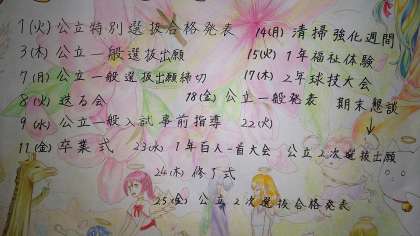 1(火)公立特別選抜合格発表
3(木)公立一般選抜出願
7(月)公立一般選抜出願締切
8(火)送る会
9(水)公立一般入試事前指導
11(金)卒業式
14(月)清掃強化週間
15(火)1年福祉体験
17(木)2年球技大会
18(金)公立一般発表 期末懇談
22(火)
23(水)1年百人一首大会 公立2次選抜出願
24(木)修了式
25(金)公立2次選抜合格発表